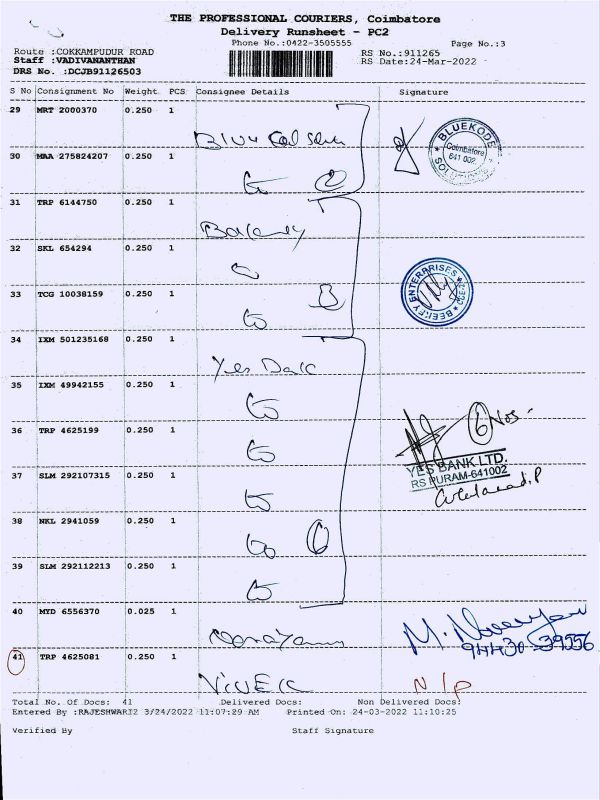 THE PROFESSIONAL COURIERS, Coimbatore
Delivery Runsheet - PC2
Phone No.:0422-3505555 Page No.:3
Route :COKKAMPUDUR ROAD RS No.:911265
Staff :VADIVANANTHAN RS Date:24-Mar-2022
DRS No. :DCJB91126503
S No Consignment No Weight PCS Consignee Details Signature
29 MRT 2000370 0.250 1
BLUEKODE
Coimbatore
641 002
30 MAA 275824207 0.250 1
2
31 TRP 6144750 0.250 1
32 SKL 654294 0.250 1
BEEKEY ENTERPRISES
33 TCG 10038159 0.250 1
3
34 IXM 501235168 0.250 1
Yes Bank
35 IXM 49942155 0.250 1
36 TRP 4625199 0.250 1
6 Nos -
YES BANK LTD.
RS PURAM-641002
37 SLM 292107315 0.250 1
38 NKL 2941059 0.250 1
6
39 SLM 292112213 0.250 1
40 MYD 6556370 0.025 1
Narayanan M. Narayan
94430-39556
41 TRP 4625081 0.250 1
VIVEK N/P
Total No. Of Docs: 41 Delivered Docs: Non Delivered Docs:
Entered By :RAJESHWARI2 3/24/2022 11:07:29 AM Printed On: 24-03-2022 11:10:25
Verified By Staff Signature